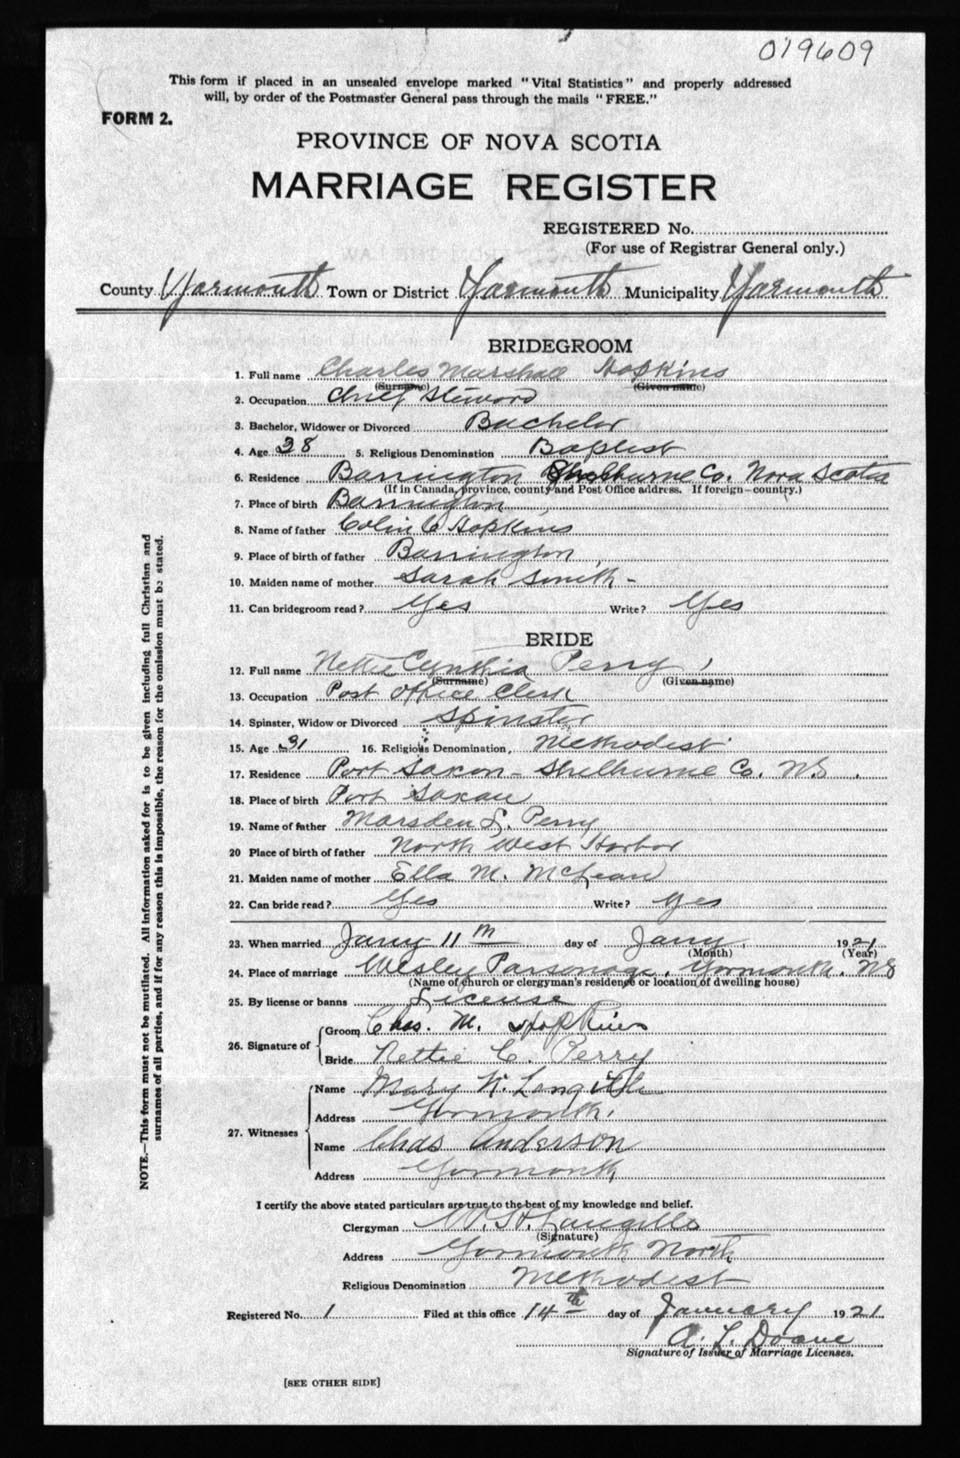 019609
This form if placed in an unsealed envelope marked "Vital Statistics" and properly addressed
will, by order of the Postmaster General pass through the mails "FREE."
FORM 2.
PROVINCE OF NOVA SCOTIA
MARRIAGE REGISTER
REGISTERED No.
(For use of Registrar General only.)
County Yarmouth Town or District Yarmouth Municipality Yarmouth
BRIDEGROOM
1. Full name Charles Marshall Hopkins
(Surname) (Given name)
2. Occupation Chief Steward
3. Bachelor, Widower or Divorced Bachelor
4. Age 38 5. Religious Denomination Baptist
6. Residence Barrington Shelburne Co. Nova Scotia
(If in Canada, province, county and Post Office address. If foreign—country.)
7. Place of birth Barrington
8. Name of father Colin C Hopkins
9. Place of birth of father Barrington
10. Maiden name of mother Sarah Smith -
11. Can bridegroom read? Yes Write? Yes
BRIDE
12. Full name Nettie Cynthia Perry
(Surname) (Given name)
13. Occupation Post Office Clerk
14. Spinster, Widow or Divorced Spinster
15. Age 31 16. Religious Denomination, Methodist
17. Residence Port Saxon - Shelburne Co. N.S.
18. Place of birth Port Saxon
19. Name of father Marsden L. Perry
20 Place of birth of father North West Harbor
21. Maiden name of mother Ella M. McLean
22. Can bride read? Yes Write? Yes
23. When married Jany 11th day of Jany. 1921
(Month) (Year)
24. Place of marriage Wesley Parsonage, Yarmouth. NS
(Name of church or clergyman's residence or location of dwelling house)
25. By license or banns License
26. Signature of Groom Chas. M. Hopkins
Bride Nettie C. Perry
27. Witnesses Name Mary W. Langille
Address Yarmouth.
Name Chas Anderson
Address Yarmouth
I certify the above stated particulars are true to the best of my knowledge and belief.
Clergyman W. H. Langille
(Signature)
Address Yarmouth North
Religious Denomination Methodist
Registered No. 1 Filed at this office 14th day of January 1921
A. L. Doane
Signature of Issuer of Marriage Licenses.
[SEE OTHER SIDE]
NOTE.—This form must not be mutilated. All information asked for is to be given including full Christian and
surnames of all parties, and if for any reason this is impossible, the reason for the omission must be stated.